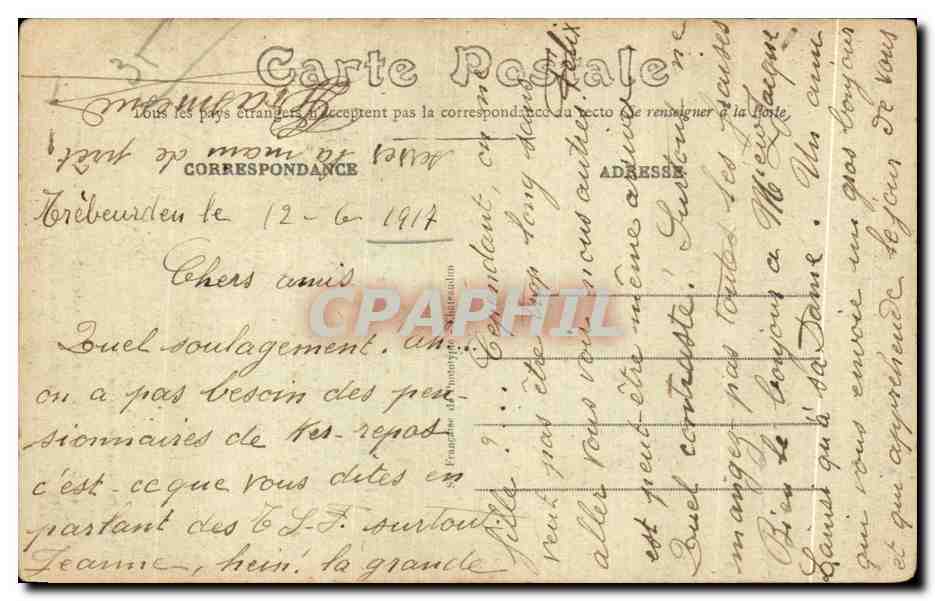 Carte Postale
Tous les pays étrangers n'acceptent pas la correspondance au recto (Se renseigner à la Poste)
CORRESPONDANCE
ADRESSE
Trébeurden le 12-6 1917
Chers amis
Quel soulagement. Ah...
on a pas besoin des pen-
sionnaires de Ker-repos
c'est-ce que vous dites en
partant des T S F surtout
Jeanne, hein! la grande
fille? ... Cependant, on ne
veut pas être trop long sans
aller vous voir nous autres. Félix
est peut-être même arrivé.
Quel contraste! Surtout ne
mangez pas toutes les fraises
Bien le bonjour à Mr
Lainsi qu'à sa Dame. Un ami
qui vous envoie un gros bonjour
et qui appréhende le jour de vous
serrer la main de près!
Française de Phototypie - Châteaudun
CPAPHIL
31